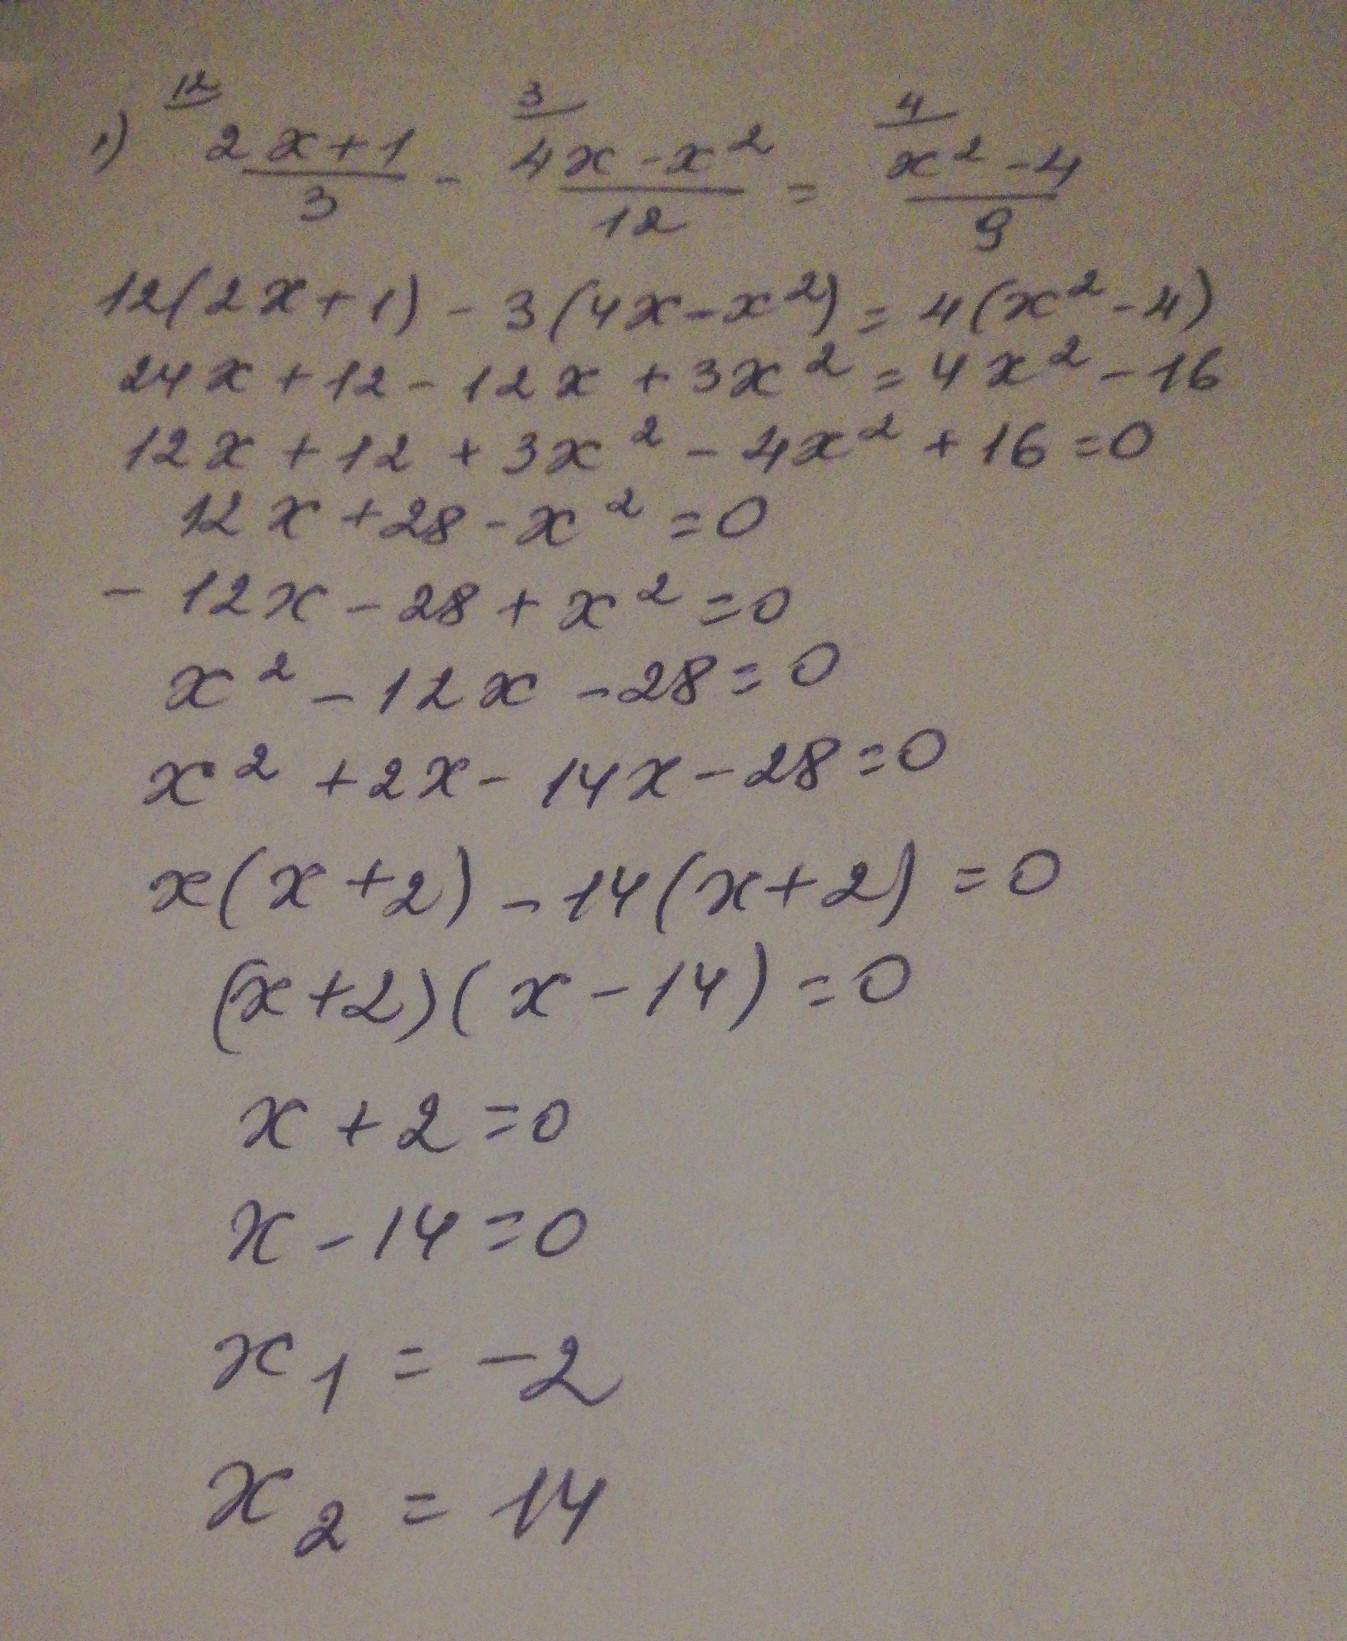 1) 12 2x+1/3 - 3 4x-x²/12 = 4 x²-4/9
12(2x+1) - 3(4x-x²) = 4(x²-4)
24x+12-12x+3x²=4x²-16
12x+12+3x²-4x²+16=0
12x+28-x²=0
-12x-28+x²=0
x²-12x-28=0
x²+2x-14x-28=0
x(x+2)-14(x+2)=0
(x+2)(x-14)=0
x+2=0
x-14=0
x₁=-2
x₂=14